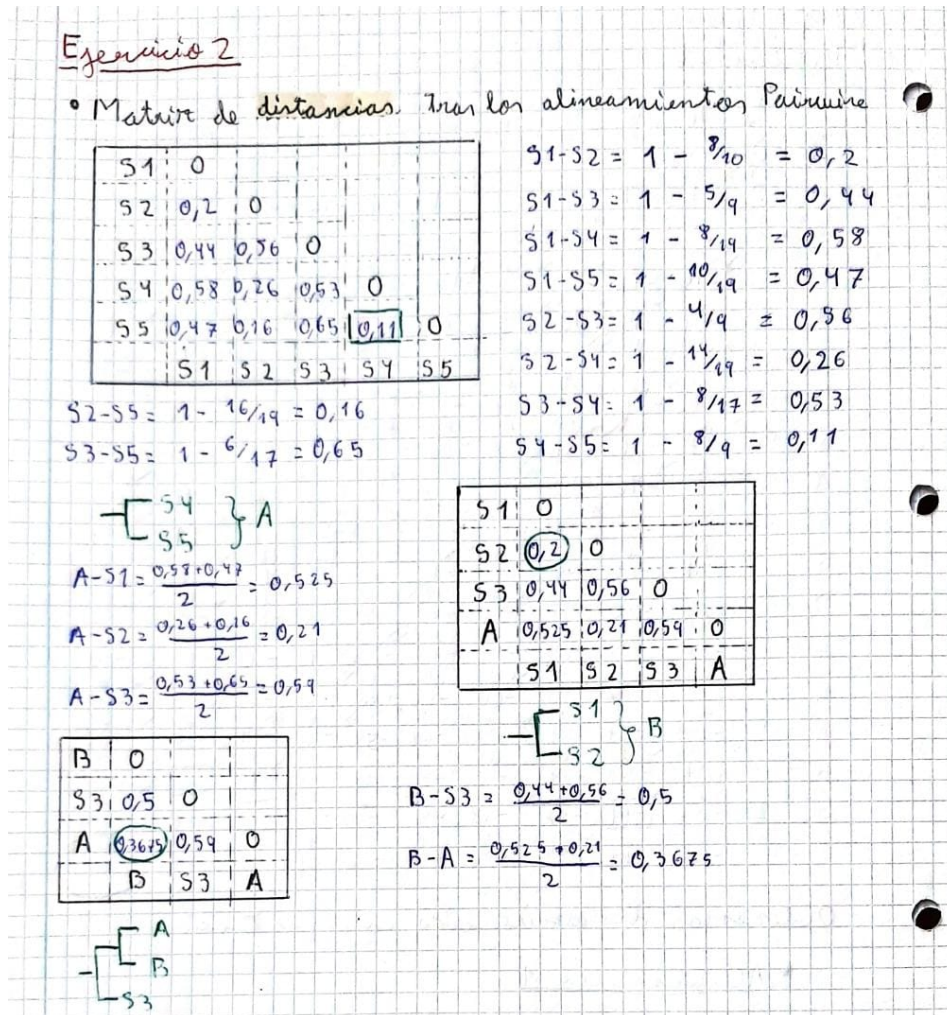 Ejercicio 2
• Matriz de distancias. Tras los alineamientos Pairwise
S1 0
S2 0,2 0
S3 0,44 0,56 0
S4 0,58 0,26 0,53 0
S5 0,47 0,16 0,65 0,11 0
S1 S2 S3 S4 S5
S1-S2 = 1 - 8/10 = 0,2
S1-S3 = 1 - 5/9 = 0,44
S1-S4 = 1 - 8/19 = 0,58
S1-S5 = 1 - 10/19 = 0,47
S2-S3 = 1 - 4/9 = 0,56
S2-S4 = 1 - 14/19 = 0,26
S3-S4 = 1 - 8/17 = 0,53
S4-S5 = 1 - 8/9 = 0,11
S2-S5 = 1 - 16/19 = 0,16
S3-S5 = 1 - 6/17 = 0,65
S4
S5 } A
A-S1 = 0,58+0,47/2 = 0,525
A-S2 = 0,26+0,16/2 = 0,21
A-S3 = 0,53+0,65/2 = 0,59
S1 0
S2 0,2 0
S3 0,44 0,56 0
A 0,525 0,21 0,59 0
S1 S2 S3 A
S1
S2 } B
B-S3 = 0,44+0,56/2 = 0,5
B-A = 0,525+0,21/2 = 0,3675
B 0
S3 0,5 0
A 0,3675 0,59 0
B S3 A
A
B
S3